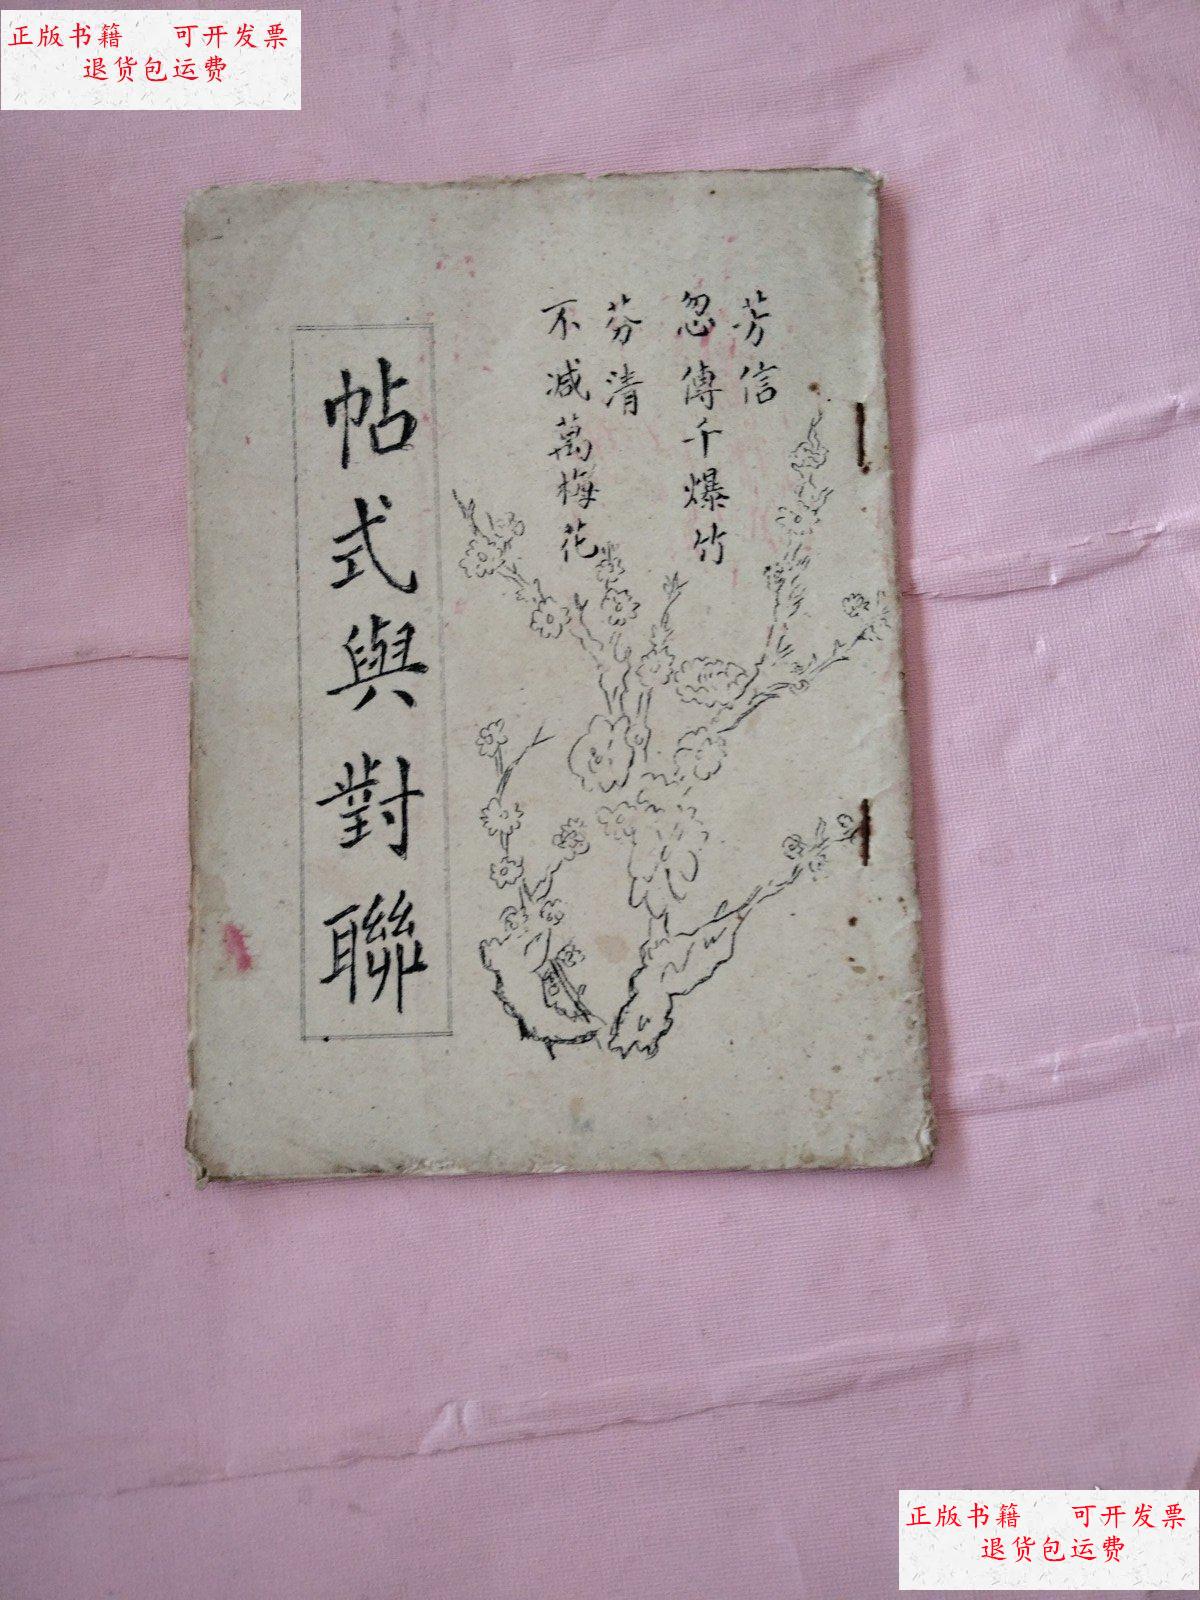 正版书籍 可开发票
退货包运费
芳信
忽傳千爆竹
芬清
不减萬梅花
帖式與對聯
正版书籍 可开发票
退货包运费